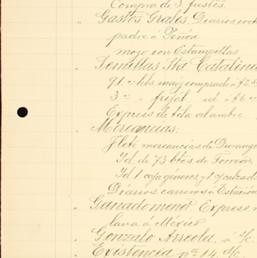 Compra de 3 fustes
Gastos Grales. Diarios
padre á Peñon
mozo con Estampillas
Semillas Sta Catalina
91 " hbs maiz comprado á $2
3 " frijol id á $6
Express de tela alambre
Mercancías:
Flete mercancias de Durango
Id de 73 btos de Torreon
Id 1 caja géneros y 1 calzado
Diarios carreros á Estación
Ganado menor Express
lana á México
Gonzalo Arreola á %
Existencia nº 14 d/